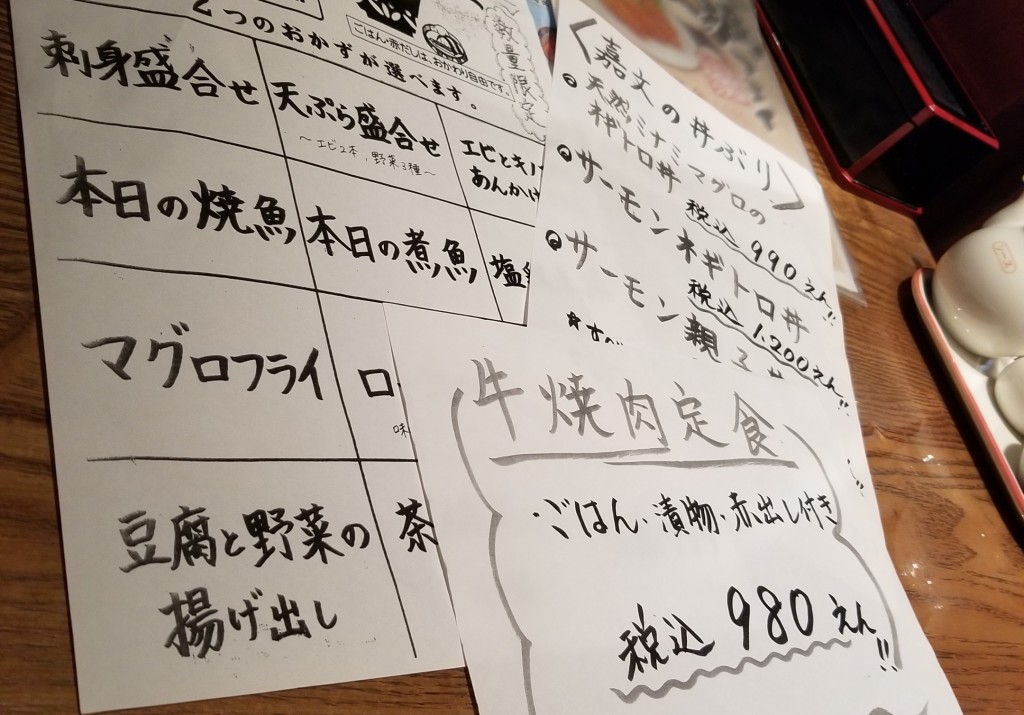 ごはん・赤だしは、おかわり自由です。
数量限定
2つのおかずが選べます。
刺身盛合せ
天ぷら盛合せ
～エビ2本、野菜3種～
エビとキノ
あんかけ
本日の焼魚
本日の煮魚
塩
マグロフライ
ロ
味
豆腐と野菜の
揚げ出し
茶
〈嘉文の丼ぶり〉
・天然ミナミマグロの
ネギトロ丼
税込990えん!!
・サーモンネギトロ丼
税込1,200えん!!
・サーモン親子丼
牛焼肉定食
・ごはん・漬物・赤出し付き
税込980えん!!